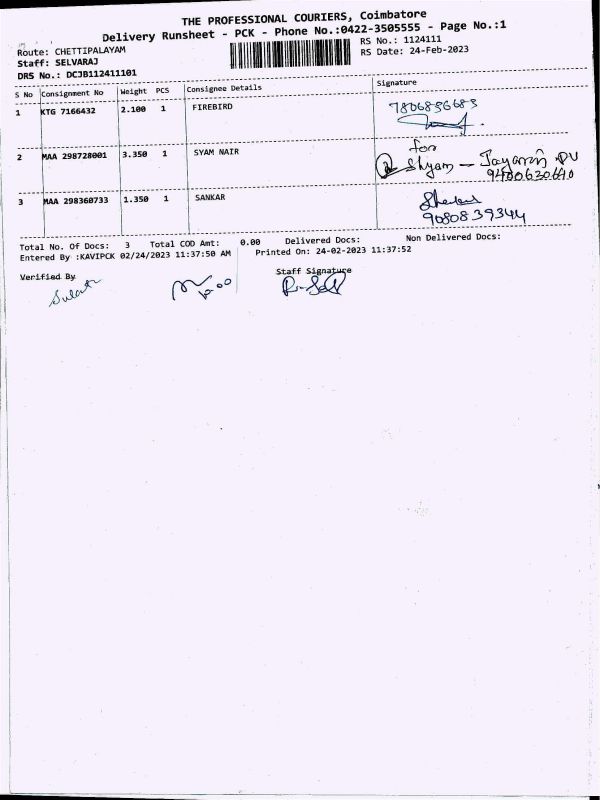 THE PROFESSIONAL COURIERS, Coimbatore
Delivery Runsheet - PCK - Phone No.:0422-3505555 - Page No.:1
Route: CHETTIPALAYAM
RS No.: 1124111
Staff: SELVARAJ
RS Date: 24-Feb-2023
DRS No.: DCJB112411101
S No Consignment No Weight PCS Consignee Details Signature
1 KTG 7166432 2.100 1 FIREBIRD 7806856685
2 MAA 298728001 3.350 1 SYAM NAIR for
Shyam - Jayaram PV
9400630640
3 MAA 298360733 1.350 1 SANKAR
9080839344
Total No. Of Docs: 3 Total COD Amt: 0.00 Delivered Docs: Non Delivered Docs:
Entered By :KAVIPCK 02/24/2023 11:37:50 AM Printed On: 24-02-2023 11:37:52
Verified By Staff Signature